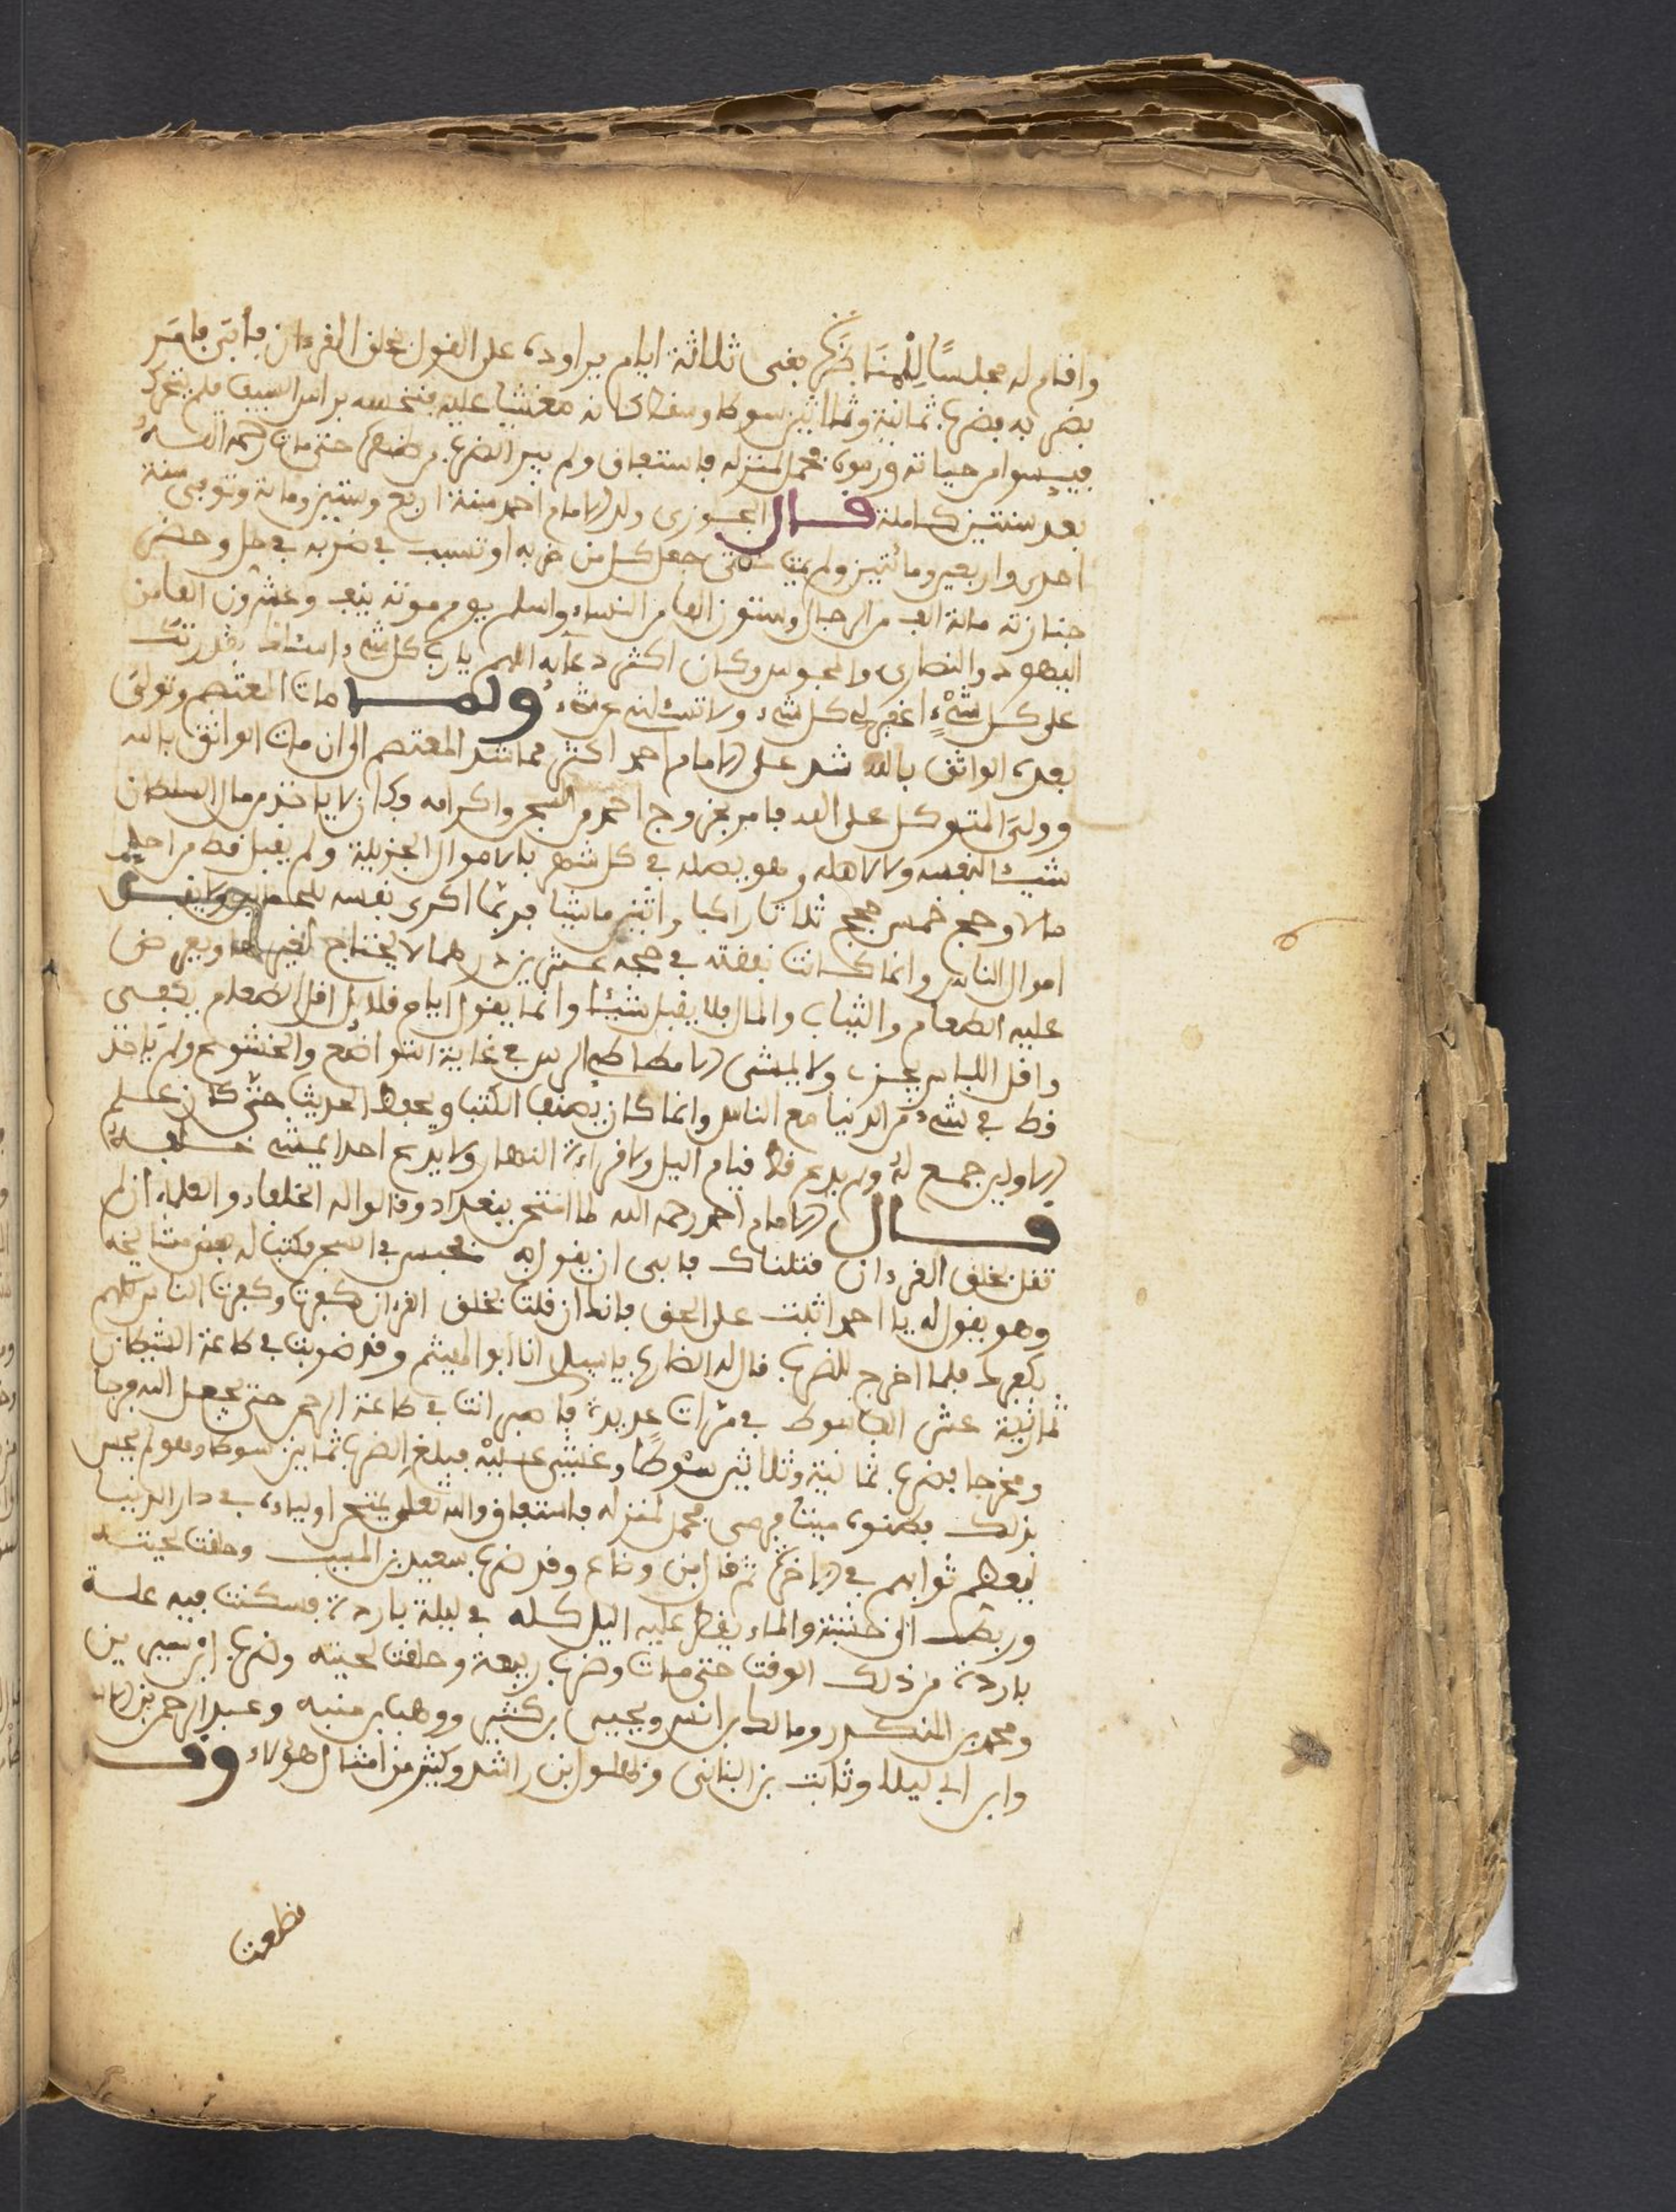 واقام له مجلسا لِلْمُنَاظَرَة بقى ثلاثة ايام يراوده على القول بخلق القرءان فأبى فامر
بضربه فضرب ثمانية وثلاثين سوطا وسقط مغشيا عليه فنخسه براس السيف فلم يتحرك
فييسوا من حياته ورموه فحمل لمنزله فاستفاق ولم يبر الضرب من ظهره حتى مات رحمه الله
بعد سنتين كاملة قال الجوزى ولد الامام احمد سنة اربع وستين ومائة وتوفى سنة
احدى واربعين ومائتين ولم يمت حتى جعل كل من ضربه او تسبب في ضربه في حل وحضر
جنازته مائة الف من الرجال وستون الفا من النساء واسلم يوم موته نيف وعشرون الفا من
اليهود والنصارى والمجوس وكان اكثر دعآيه اللهم يا رب كل شىء اسئلك بقدرتك
على كل شىْءٍ اغفر لي كل شىء ولا تسئلنى عن شىء ولمـا مات المعتصم وتولى
بعده الواثق بالله شد على الامام احمد اكثر مما شد المعتصم الى ان مات الواثق بالله
وولى المتوكل على الله فامر بخروج احمد من السجن واكرامه وكان لا ياخذ من مال السلطان
شيئا لنفسه ولا لاهله وهو يصله في كل شهر بالاموال الجزيلة ولم يقبل قط من احد
مالا وحج خمس حجج ثلاثا راكبا واثنين ماشيا فربما اكرى نفسه
اموال الناس وانما كانت نفقته في حجه عشرين درهما لا يحتاج لغيرها ويعرض
عليه الطعام والثياب والمال فلا يقبل شيئا وانما يقول ايام قلايل اقل الطعام يكفى
واقل اللباس يجزء ولا يمشى الا مطاطى الراس في غاية التواضع والخشوع ولم ياخذ
قط في شىء من الدنيا مع الناس وانما كان يصنف الكتب ويحفظ الحديث حتى كان علم
الاولين جمع له ولم يدع قط قيام اليل ولا قراءة النهار ولا يدع احدا يمشى خلفه
قـال الامام احمد رحمه الله لما امتحن ببغداد وقالوا له الخلفاء والعلماء ان لم
تقل بخلق القرءان قتلناك فابى ان يقول به فحبس في السجن فكتب له بعض مشايخه
وهو يقول له يا احمد اثبت على الحق فانك ان قلت بخلق القرءان كفرت وكفرت الناس كلهم
بكفرك فلما اخرج للضرب قال له الضارب يا سيدى انا ابو الهيثم وقد ضربت في طاعة الشيطان
ثمانية عشر الف سوط في مرات عديدة فاصبر انت في طاعة الرحمن حتى يجعل الله فرجا
ومخرجا فضرب ثمانية وثلاثين سوْطًا وغشى عليْه فبلغ الضرب ثمانين سوطا وهو لم يحس
بذلك فظنوه ميتا فرمى فحمل لمنزله فاستفاق والله تعلى يمتحن اولياءه في دار الدنيا
ليعظم ثوابهم في الاخرة ثم قال ابن وضاح وقد ضرب سعيد بن المسيب وحلقت لحيته
وربط الى خشبة والماء يقطر عليه اليل كله في ليلة باردة فسكنت فيه علة
باردة من ذلك الوقت حتى مات وضرب ربيعة وحلقت لحيته وضرب الزبير بن
ومحمد بن المنكدر ومالك بن انس ويحيى بن كثير ووهب بن منبه وعبد الرحمن بن
وابن ابي ليلا وثابت بن البنانى وابن راشد وكثير من امثال هؤلاء وقد